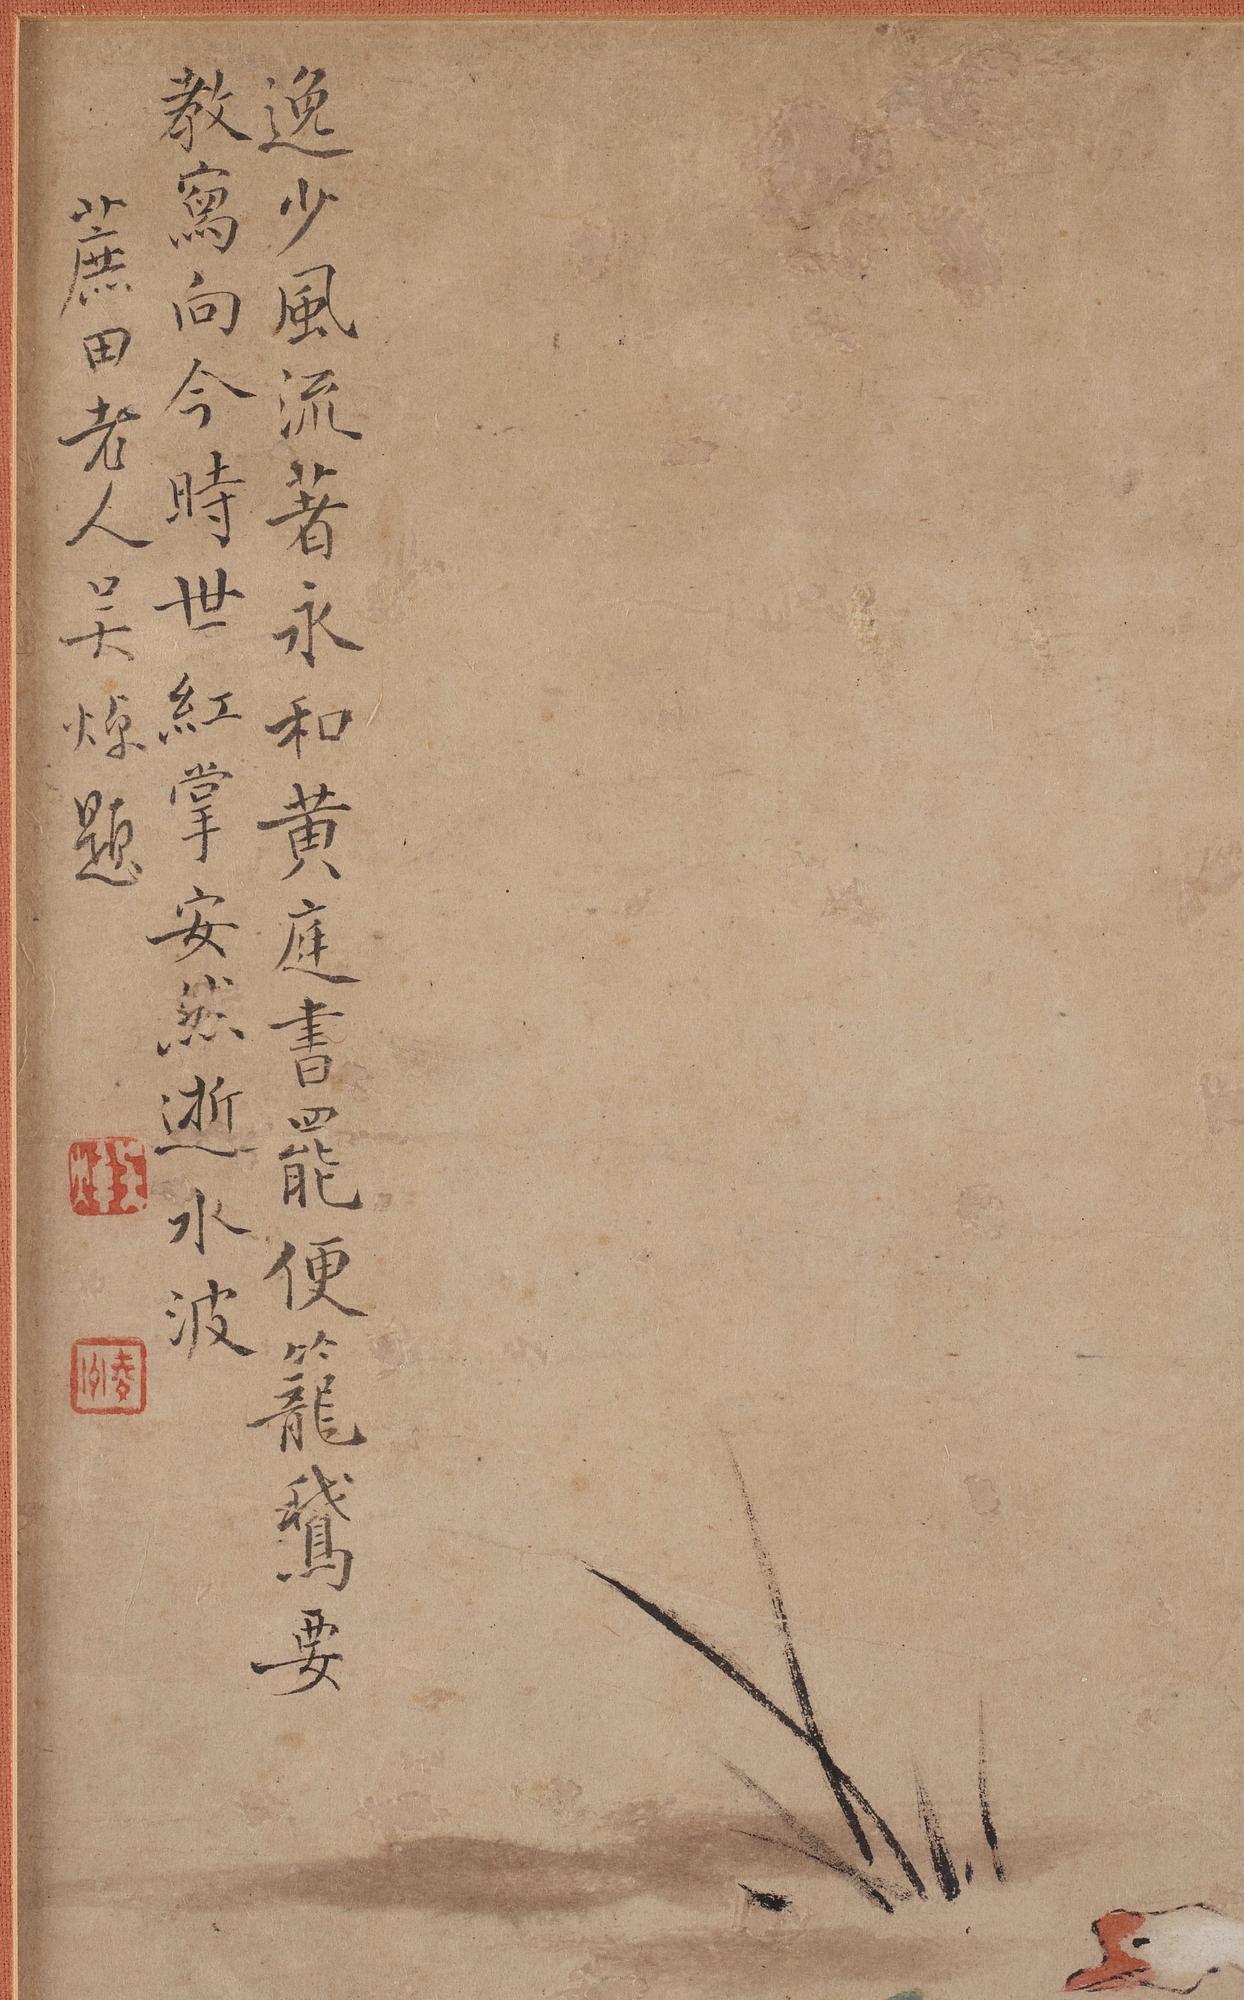 逸少風流著永和黄庭書罷便籠鵝要
教寫向今時世紅掌安然逝水波
蔗田老人吴焯題